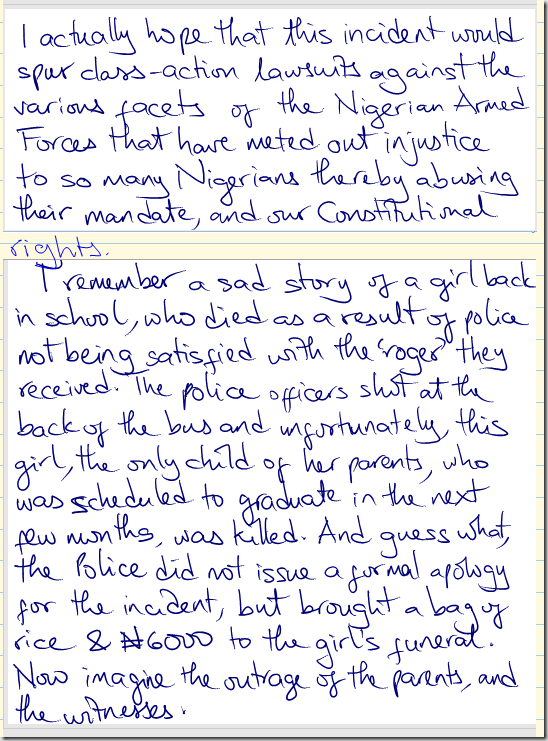 I actually hope that this incident would
spur class-action lawsuits against the
various facets of the Nigerian Armed
Forces that have meted out injustice
to so many Nigerians thereby abusing
their mandate, and our Constitutional
rights.
I remember a sad story of a girl back
in school, who died as a result of police
not being satisfied with the 'roger' they
received. The police officers shot at the
back of the bus and unfortunately, this
girl, the only child of her parents, who
was scheduled to graduate in the next
few months, was killed. And guess what,
the Police did not issue a formal apology
for the incident, but brought a bag of
rice & ₦6000 to the girl's funeral.
Now imagine the outrage of the parents, and
the witnesses.